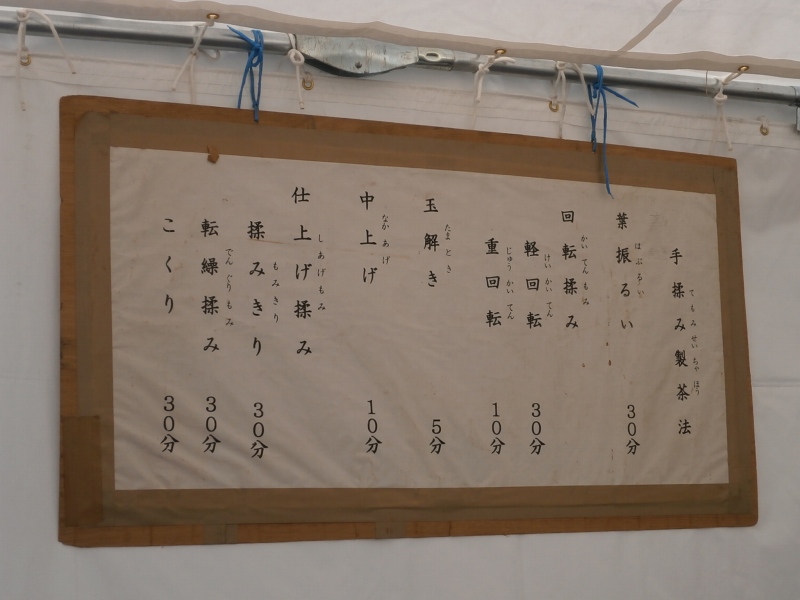 手揉み製茶法
てもみせいちゃほう
葉振るい 30分
はぶるい
回転揉み
かいてんもみ
軽回転 30分
けいかいてん
重回転 10分
じゅうかいてん
玉解き 5分
たまとき
中上げ 10分
なかあげ
仕上げ揉み
しあげもみ
揉みきり 30分
もみきり
転繰揉み 30分
でんぐりもみ
こくり 30分